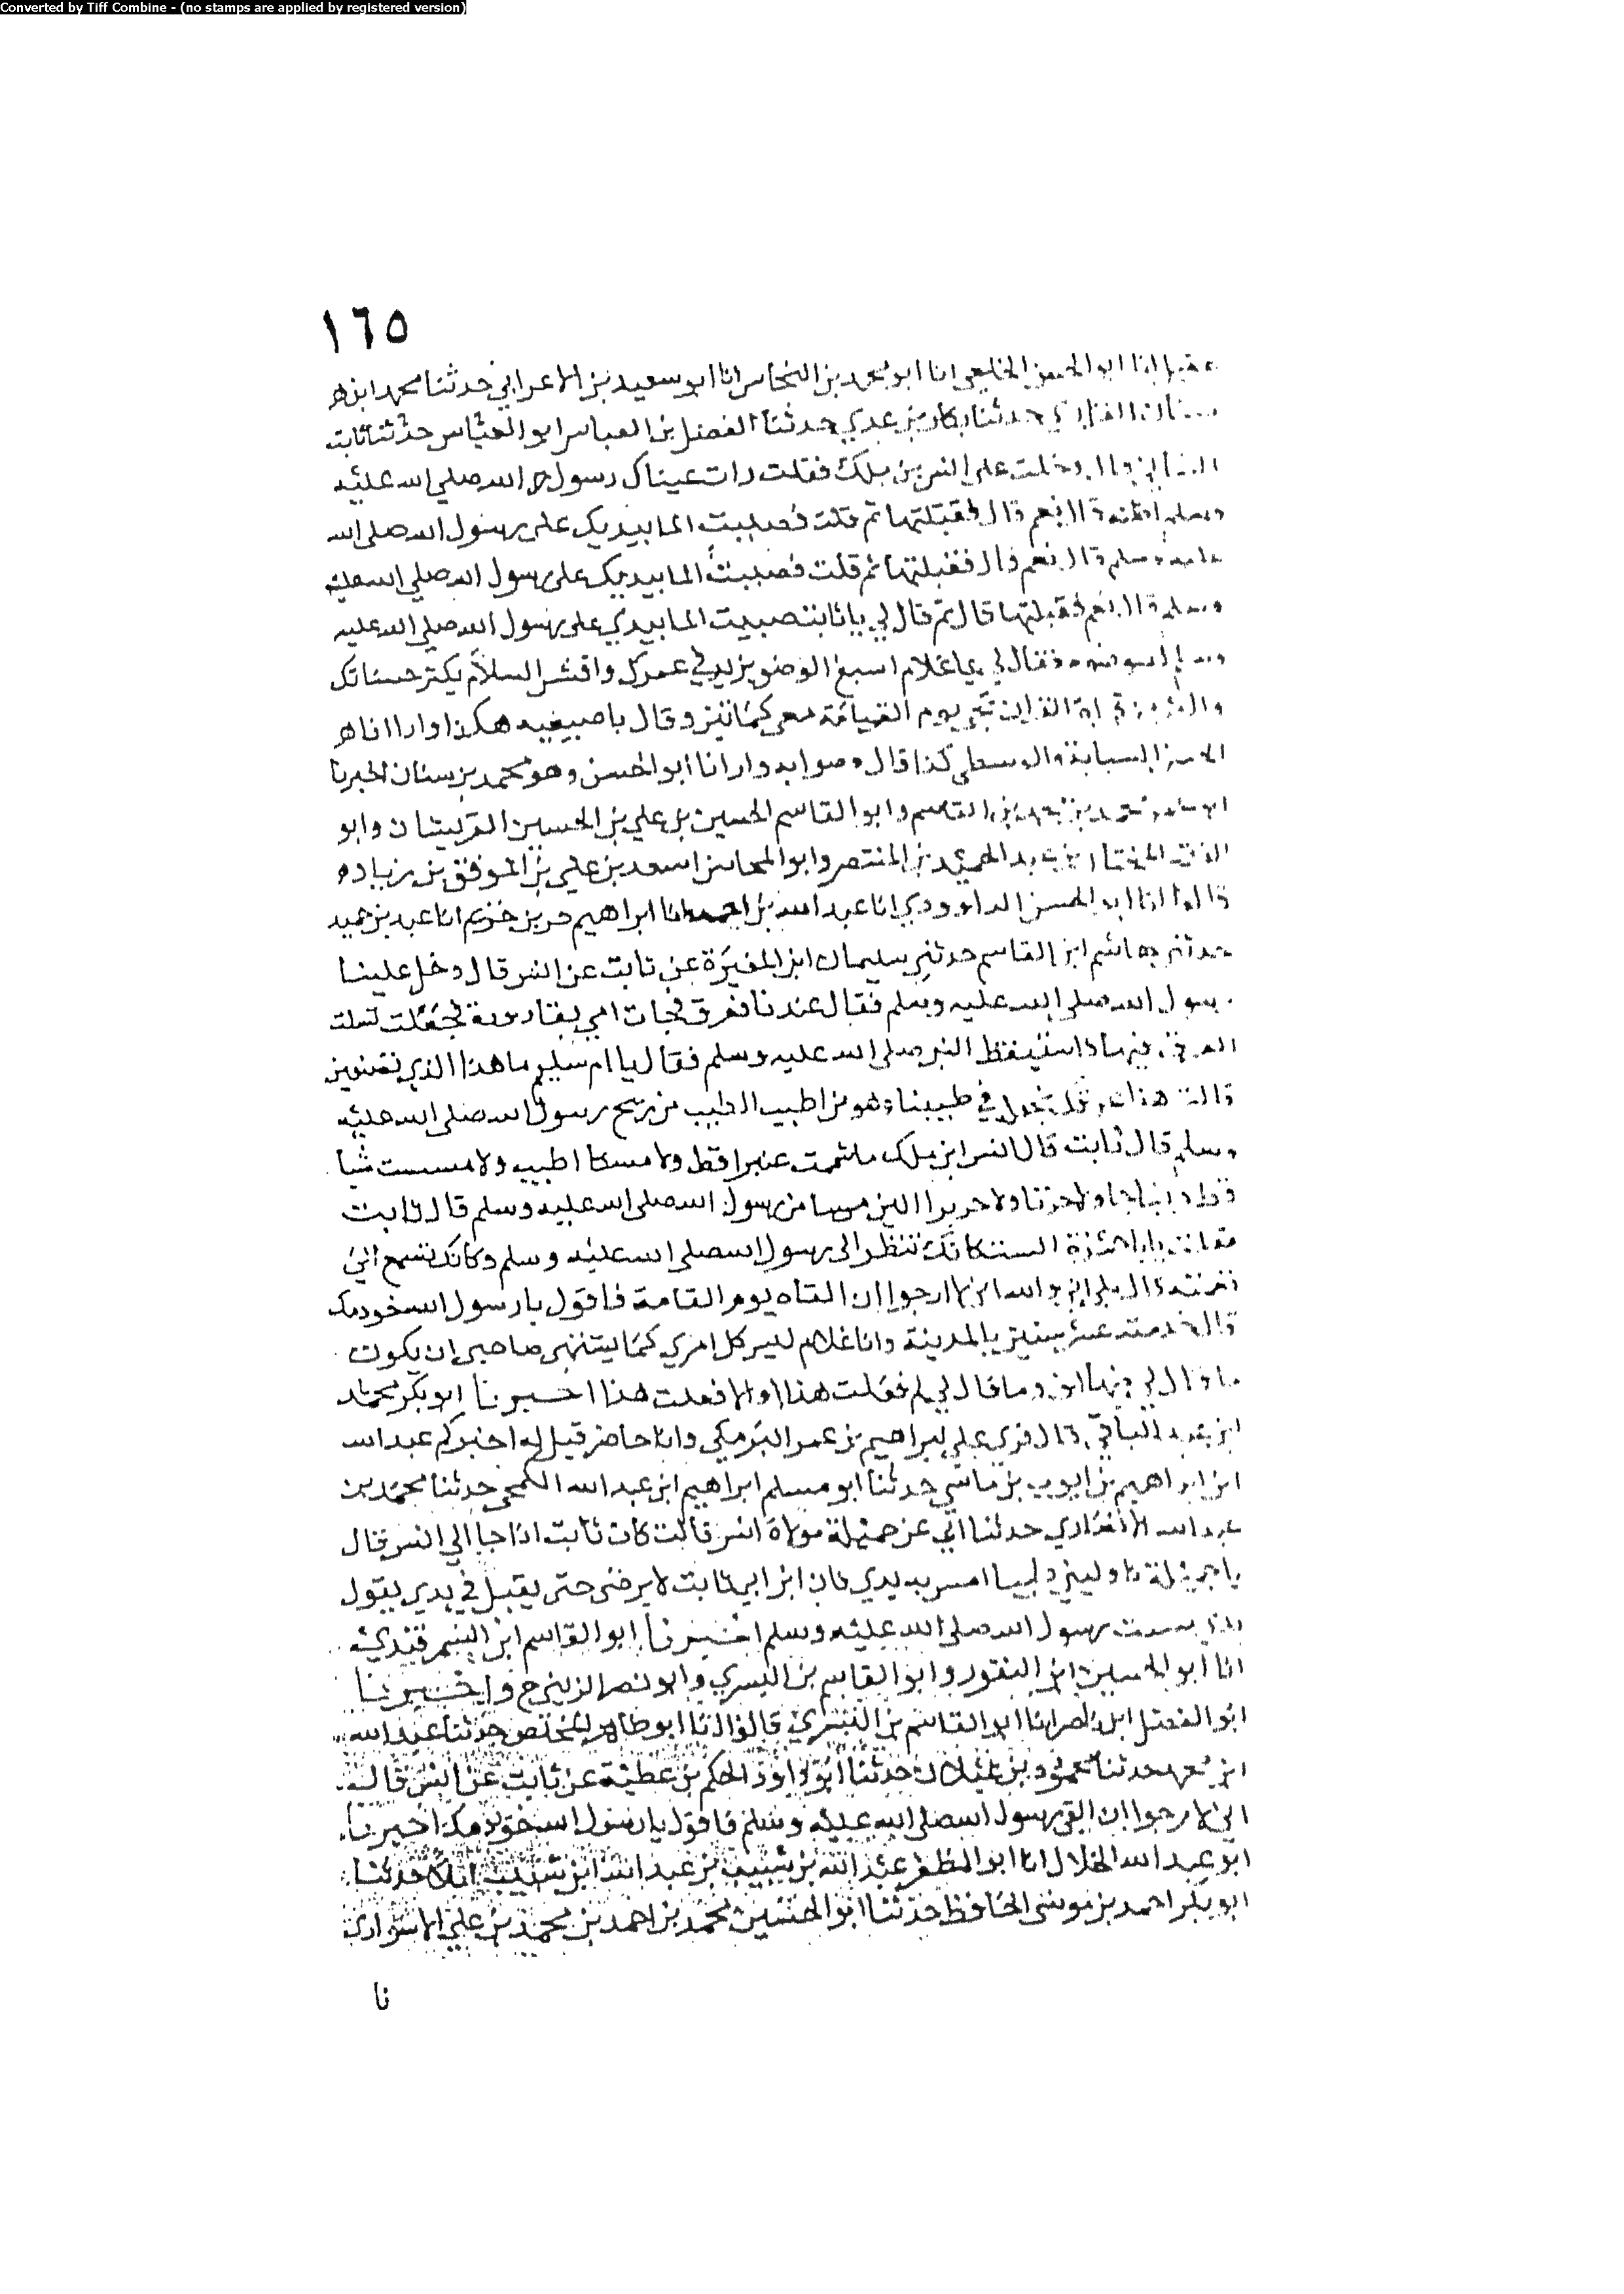 Converted by Tiff Combine - (no stamps are applied by registered version)
١٦٥
انا ابو الحسن الخلعي انا ابو محمد بن النحاس انا ابو سعيد بن الاعرابي حدثنا محمد ابن
الفزاري حدثنا بكار بن عدي حدثنا الفضل بن العباس ابو العباس حدثنا ثابت
دخلت على انس بن ملك فقلت رات عيناك رسول الله صلى الله عليه
وسلم قال نعم قال فقبلتها ثم قلت فصببت الما بيديك على رسول الله صلى الله
عليه وسلم قال نعم قال فقبلتها ثم قلت فصببت الما بيديك على رسول الله صلى الله عليه
وسلم قال نعم فقبلتها قال ثم قال لي يا ثابت صببت الما بيدي على رسول الله صلى الله عليه
وسلم فقال لي يا غلام اسبغ الوضو يزيد في عمرك وافش السلام يكثر حسناتك
يوم القيامة معي كهاتين وقال باصبعيه هكذا وارانا
السبابة والوسطى كذا قال وصوابه وارانا ابو الحسن وهو محمد بن سنان اخبرنا
بن القاسم وابو القاسم الحسين بن علي بن الحسين القرشيان وابو
المختار بن عبد الحميد بن المنتصر وابو المحاسن اسعد بن علي بن الموفق بن زياد
قالوا انا ابو الحسن الداوودي انا عبد الله بن احمد انا ابراهيم بن خزيم انا عبد بن حميد
حدثني هاشم ابن القاسم حدثني سليمان ابن المغيرة عن ثابت عن انس قال دخل علينا
رسول الله صلى الله عليه وسلم فقال عندنا فعرق فجات امي بقارورة فجعلت تسلت
العرق فيها فاستيقظ النبي صلى الله عليه وسلم فقال يا ام سليم ما هذا الذي تصنعين
قالت هذا عرقك نجعله في طيبنا وهو من اطيب الطيب من ريح رسول الله صلى الله عليه
وسلم قال ثابت قال انس ابن ملك ما شممت عنبرا قط ولا مسكا اطيب ولا مسست شيا
قط ديباجا ولا خزا ولا حريرا الين مسا من رسول الله صلى الله عليه وسلم قال ثابت
فقلت يابا حمزة الست كانك تنظر الى رسول الله صلى الله عليه وسلم وكانك تسمع الى
نغمته قال بلى والله اني لارجوا ان القاه يوم القامة فاقول يا رسول الله خويدمك
قال خدمته عشر سنين بالمدينة وانا غلام ليس كل امري كما يشتهي صاحبي ان يكون
ما قال لي فيها اف وما قال لي لم فعلت هذا او الا فعلت هذا اخبرنا ابو بكر محمد
ابن عبد الباقي قال قري على ابراهيم بن عمر البرمكي وانا حاضر قيل له اخبركم عبد الله
ابن ابراهيم بن ايوب بن ماسي حدثنا ابو مسلم ابراهيم ابن عبد الله الكجي حدثنا محمد بن
عبد الله الانصاري حدثنا ابي عن جميلة مولاة انس قالت كان ثابت اذا جا الى انس قال
يا جميلة ناوليني طيبا امس به يدي فان ابن ابي ثابت لا يرضى حتى يقبل في يدي يقول
مست رسول الله صلى الله عليه وسلم اخبرنا ابو القاسم ابن السمرقندي
انا ابو الحسين ابن النقور وابو القاسم بن البسري وابو نصر الزينبي ح واخبرنا
ابو الفضل ابن ناصر انا ابو القاسم بن البسري قالوا انا ابو طاهر المخلص حدثنا عبد الله
ابن محمد حدثنا محمود بن غيلان حدثنا ابو داود الحكم بن عطية عن ثابت عن انس قال
اني لارجوا ان القى رسول الله صلى الله عليه وسلم فاقول يا رسول الله خويدمك اخبرنا
ابو عبد الله الخلال انا ابو المظفر عبد الله بن شبيب بن عبد الله ابن شبيب املا حدثنا
ابو بكر احمد بن موسى الحافظ حدثنا ابو الحسين محمد بن احمد بن محمد بن علي الاسواري
نا